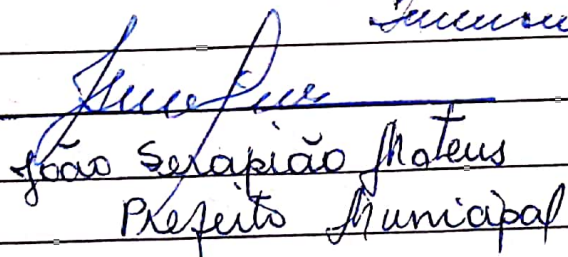 João Serapião Mateus
Prefeito Municipal